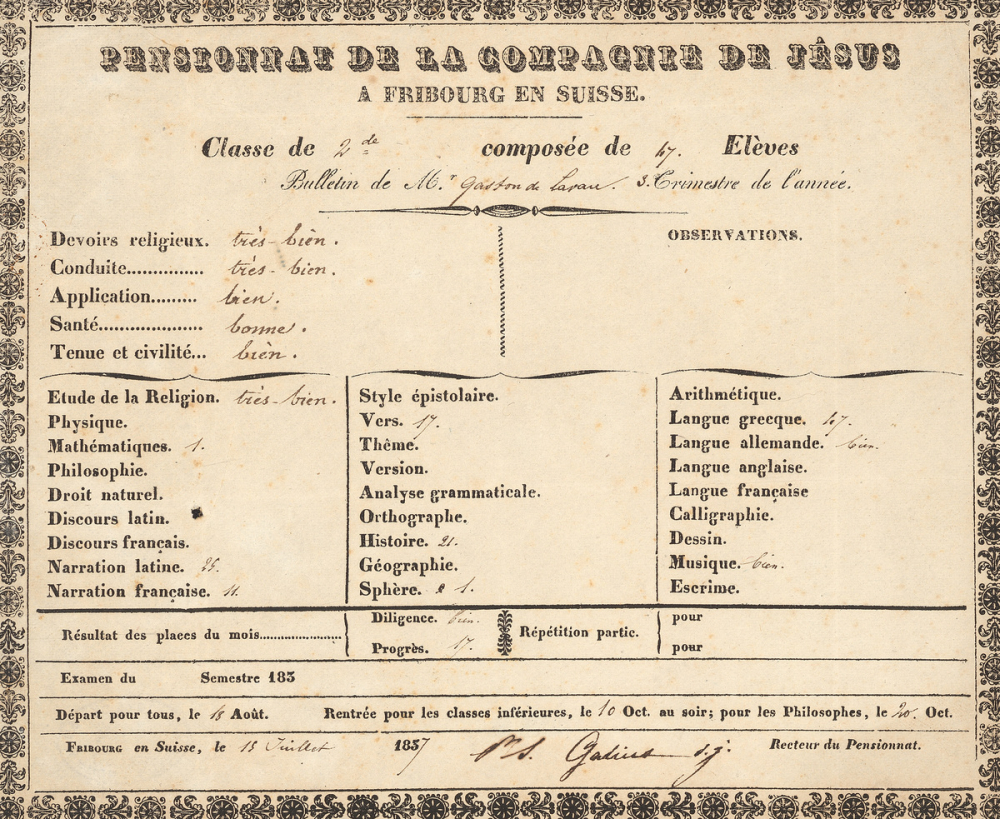 PENSIONNAT DE LA COMPAGNIE DE JÉSUS
A FRIBOURG EN SUISSE.
Classe de 2de composée de 47. Elèves
Bulletin de M.r Gaston de 3. Trimestre de l'année.
Devoirs religieux. très-bien.
Conduite............... très-bien.
Application......... bien.
Santé.................... bonne.
Tenue et civilité... bien.
OBSERVATIONS.
Etude de la Religion. très-bien.
Physique.
Mathématiques. 1.
Philosophie.
Droit naturel.
Discours latin.
Discours français.
Narration latine. 25.
Narration française. 11.
Style épistolaire.
Vers. 17.
Thême.
Version.
Analyse grammaticale.
Orthographe.
Histoire. 21.
Géographie.
Sphère. 1.
Arithmétique.
Langue grecque. 47.
Langue allemande. bien.
Langue anglaise.
Langue française
Calligraphie.
Dessin.
Musique. bien.
Escrime.
Résultat des places du mois.....................
Diligence. bien.
Progrès. 17.
Répétition partic.
pour
pour
Examen du Semestre 183
Départ pour tous, le Août. Rentrée pour les classes inférieures, le 10 Oct. au soir; pour les Philosophes, le 20. Oct.
FRIBOURG en Suisse, le 15 Juillet 1837 s.j. Recteur du Pensionnat.